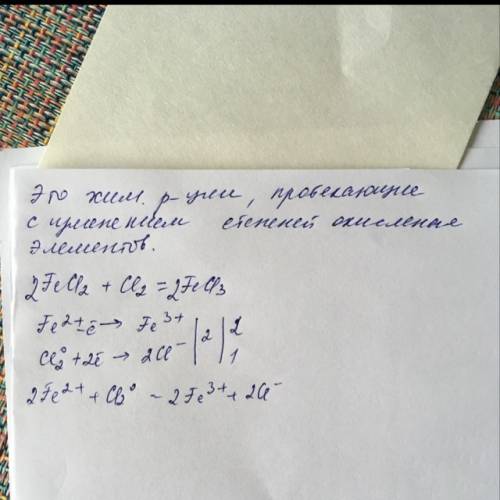 Это хим. р-ции, протекающие
с изменением степеней окисления
элементов.
2FeCl₂ + Cl₂ = 2FeCl₃
Fe²⁺ - ē → Fe³⁺ | 2 | 2
Cl₂⁰ + 2ē → 2Cl⁻ | | 1
2Fe²⁺ + Cl₂⁰ – 2Fe³⁺ + 2Cl⁻